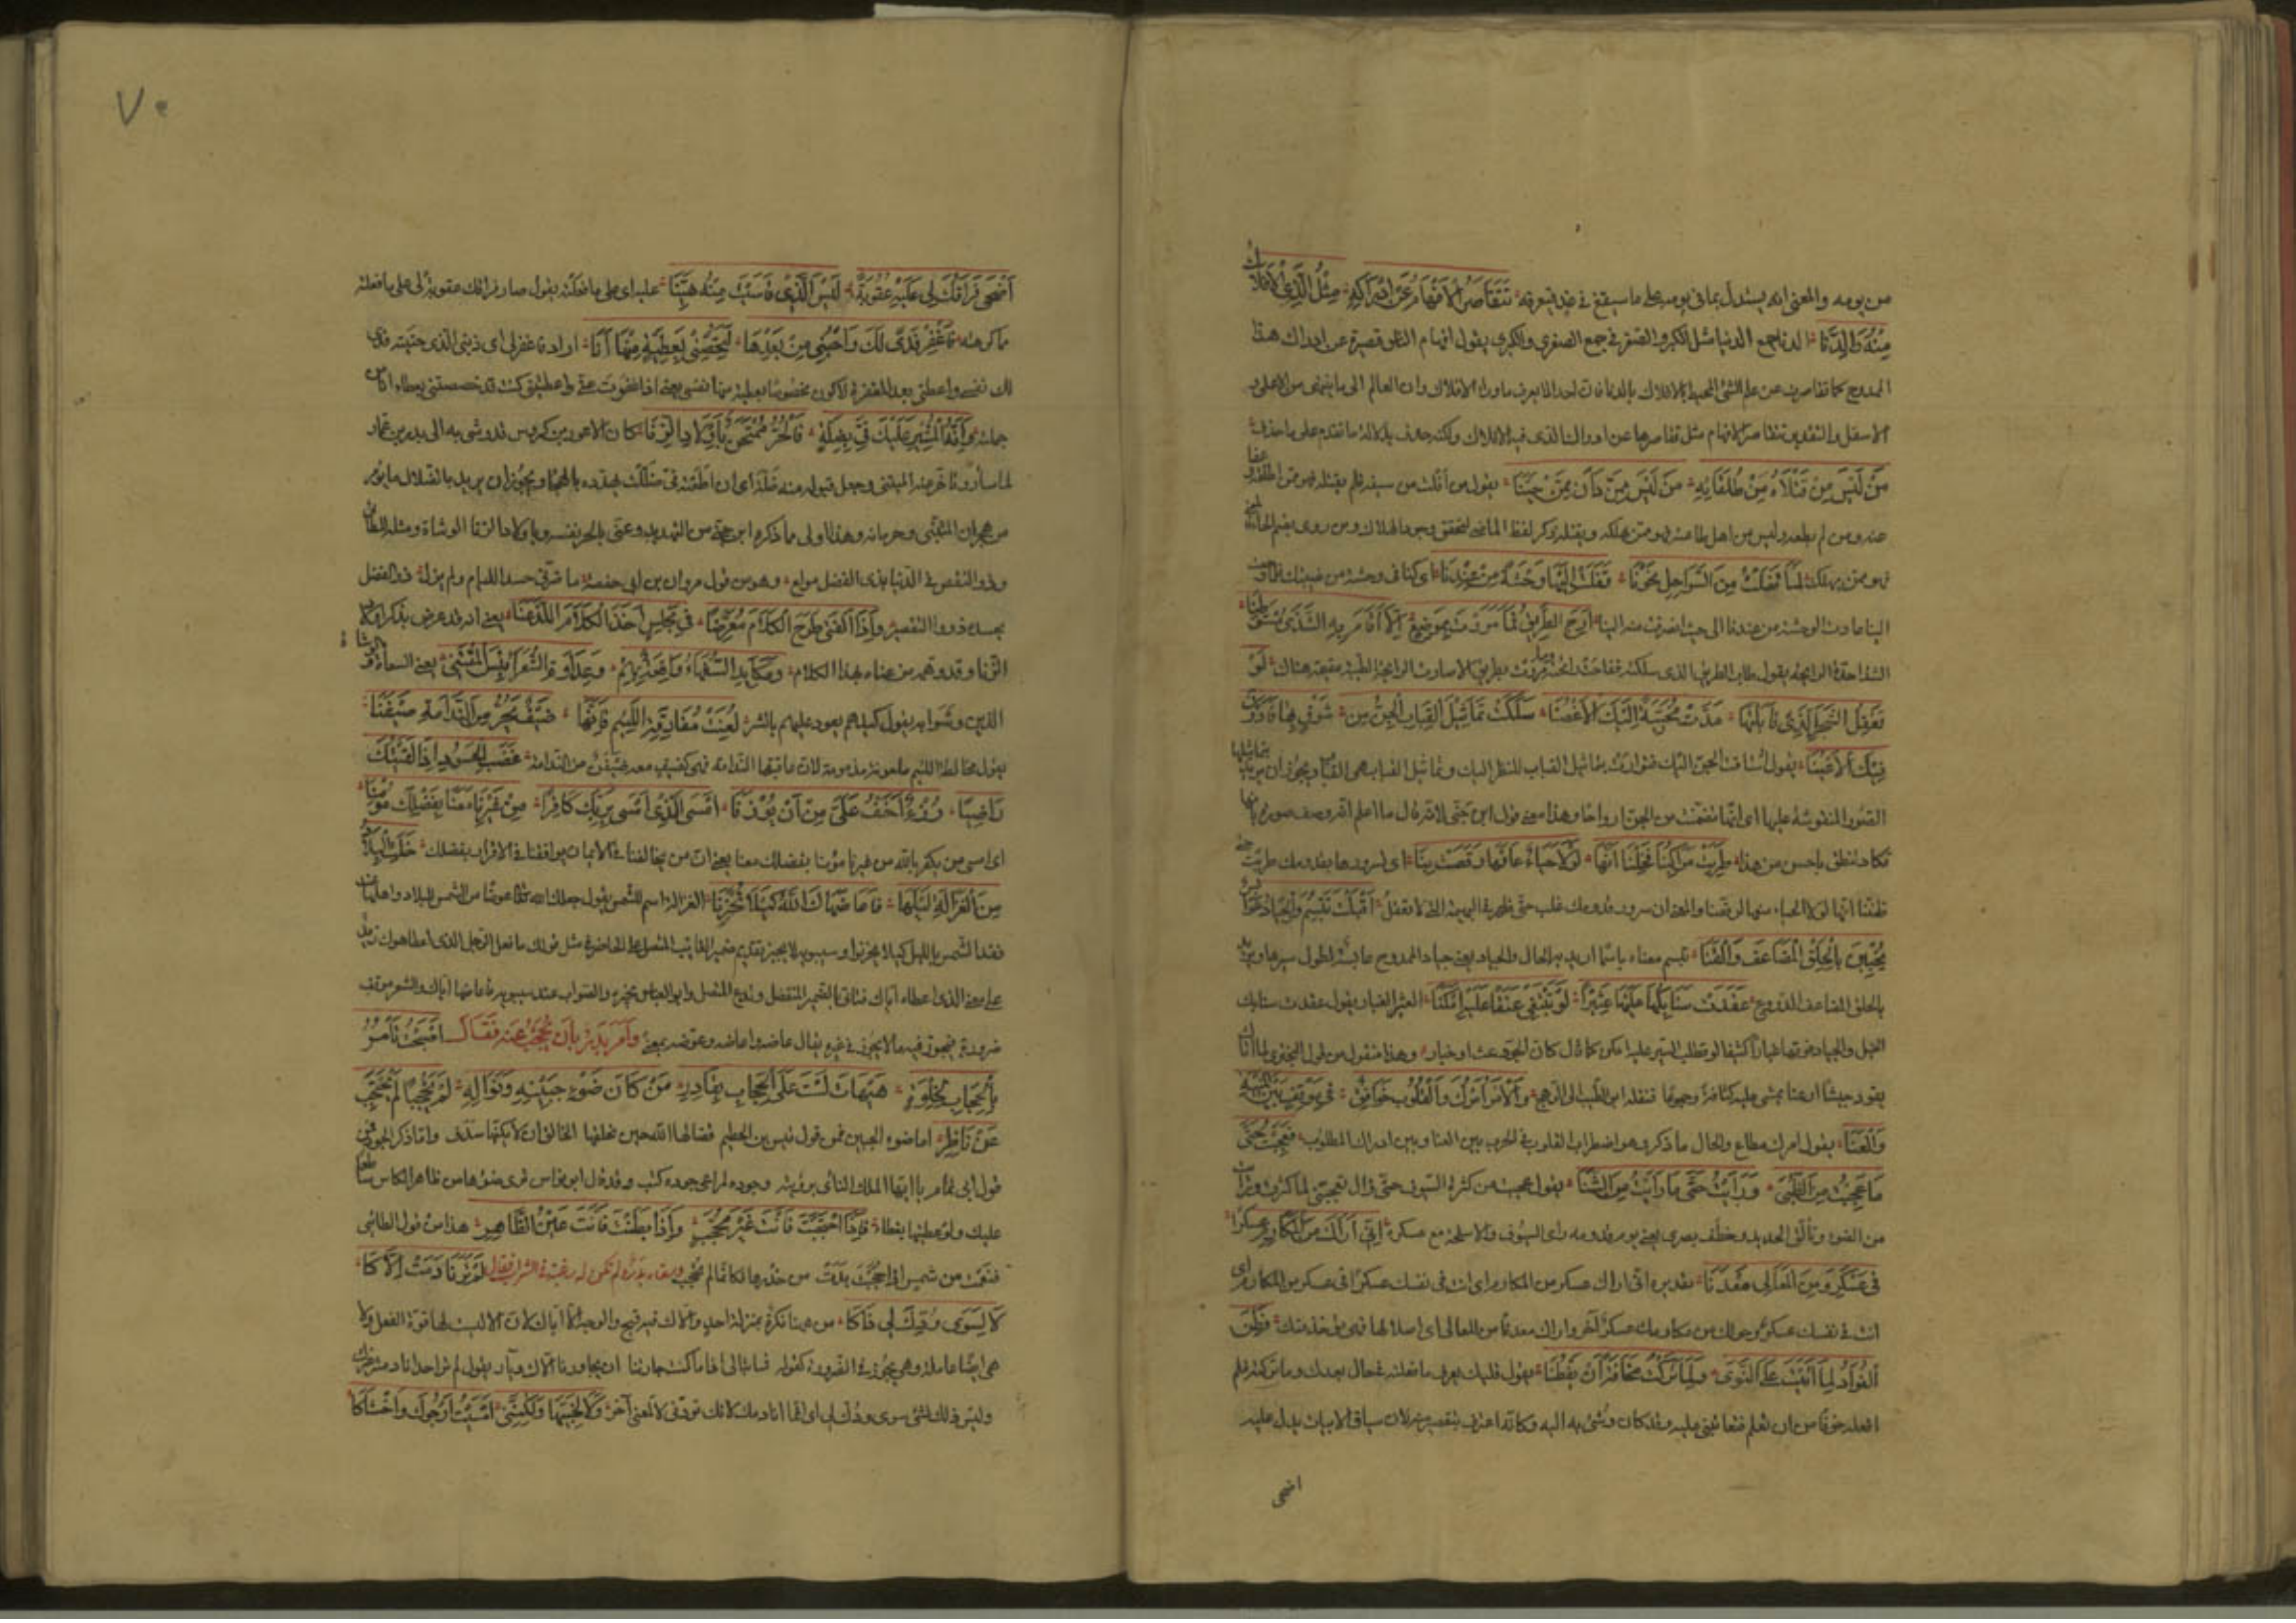 من يومه والمعنى انه يستدل بما في يومه على ما سيقع في غد فيعرفه تتقاصر الافهام عن ادراكه مثل الذي الافلاك
منه والدنا لدنا جمع الدنيا مثل الكبر والصغر في جمع الصغرى والكبرى يقول افهام الناس قصيرة عن ادراك هذا
الممدوح كما تقاصرت عن علم الشئ المحيط بالافلاك بالدنا فان احدا لا يعرف ما وراء الافلاك وان العالم الى ما ينتهى من الاعلى و
الاسفل والتقدير تتقاصر الافهام مثل تقاصرها عن ادراك الذى فيه الافلاك ولكنه حذف لدلالة ما تقدم على ما حذف
من ليس من قتلاه من طلقائه من ليس ممن دان ممن حينا يقول من افلت من سيفه فلم يقتله فهو ممن اطلقه وعفا
عنه ومن لم يطعه وليس من اهل طاعته فهو ممن هلك ويقتله وذكر لفظ الماضى لتحقق وجود الهلاك ومن روى بضم الحاء
فهو ممن يهلك لما قفلت من السواحل نحونا قفلت اليها وحشة من عندنا اى كنا فى وحشة من غيبتك فلما
الينا عادت الوحشة من عندنا الى حيث انصرفت منه الينا ارج الطريق فما مررت بموضع الا اقام به الشذى مستوطنا
الشذا حدة الرايحة يقول طاب الطريق الذى سلكته ففاحت رائحته وما مررت بطريق الا صارت الرايحة الطيبة مقيمة هناك لو
تعقل الشجر التى قابلتها مدت محيية اليك الاغصنا سلكت تماثيل القباب الجن من شوق بها فادرن
فيك الاعينا يقول اشتاقت الجن اليك فتوارت بتماثيل القباب للنظر اليك وتماثيل القباب هى القباب ويجوز ان يريد بتماثيلها
الصور المنقوشة عليها اى انها تضمنت من الجن ارواحا وهذا معنى قول ابن جنى لانه قال ما اعلم انه وصف صورة بانها
تكاد تنطق باحسن من هذا طربت مراكبنا فخلنا انها لولا حياء عاقها رقصت بنا اى لسرورها بقدومك طربت حتى
ظننا انها لولا الحياء منها لرقصت بنا والمعنى ان سرور قدومك غلب حتى ظهر فى البهيمة التى لا تعقل اقبلت تبسم والجياد عوابس
يخببن بالحلق المضاعف والقنا تبسم معناه باسما اريد به الحال والجياد يعنى جياد الممدوح عابسة لطول سيرها
بالحلق المضاعف الدروع عقدت سنابكها عليها عثيرا لو تبتغى عنقا عليه لامكنا العثير الغبار يقول عقدت سنابك
الخيل والجياد فوقها غبارا كثيفا لو تطلب السير عليه امكن كما قال كان الجو وعث او خبار وهذا منقول من قول البحترى لما اتاك
يقود جيشا ارعنا يمشى عليه كثافة وجموعا فنقله ابو الطيب الى الرهج والامر امرك والقلوب خوافق فى موقف بين المنية
والمنا يقول امرك مطاع والحال ما ذكر وهو اضطراب القلوب فى الحرب بين المنا وبين ادراك المطلوب فعجبت حتى
ما عجبت من الظبى ورايت حتى ما رايت من السنا يقول عجبت من كثرة السيوف حتى زال تعجبى لما كثرت ورايت
من الضوء وتألق الحديد ما خطف بصرى يعنى يوم قدومه راى السيوف والاسلحة مع عسكره انى اراك من المكارم عسكرا
فى عسكر ومن المعالى معدنا تقديره انى اراك عسكر من المكارم اى انت فى نفسك عسكر فى عسكر من المكارم اى
انت فى نفسك عسكر وحولك من مكارمك عسكر آخر واراك معدنا من المعالى اى اصلا لها فهى توخذ منك فطن
الفؤاد لما اتيت على النوى ولما تركت مخافة ان يفطنا يقول قلبك يعرف ما فعلته فى حال بعدك وما تركته فلم
افعله خوفا من ان تعلم فتعاتبنى عليه وقد كان وشى به اليه وكانه اعترف بتقصير منه لان سياق الابيات يدل عليه
اضحى
٧٠
اضحى فراقك لى عليه عقوبة ليس الذى قاسيت منه هينا عليه اى على ما فعلته يقول صار فراقك عقوبة لى على ما فعلته
ما كرهته فاغفر فدى لك واحبنى من بعدها لتخصنى بعطية منها انا اراد فاغفر لى اى ذنبى الذى جنيته فدى
لك نفسى واعطنى بعد المغفرة لاكون مخصوصا بعطية منها نفسى يعنى اذا عفوت عنى واعطيتنى كنت قد خصصتنى بعطاء انا من
جملته وانه المشير عليك فى بضلة فالحر ممتحن باولاد الزنا كان الاعور بن كروس قد وشى به الى بدر بن عمار
لما سار وتاخر عنه المتنبى وجعل قبوله منه ضلة اى ان اطعته فى ضللت يهدده بالهجاء ويجوز ان يريد بالضلال ما يؤمر
من هجران المتنبى وحرمانه وهذا اولى مما ذكره ابن جنى من التهديد وعنى بالحر نفسه وباولاد الزنا الوشاة ومثله للطائى
وذو النقص فى الدنيا بذى الفضل مولع وهو من قول مروان بن ابى حفصة ما ضرنى حسد اللئام ولم يزل ذو الفضل
يحسده ذوو التقصير واذا الفتى طرح الكلام معرضا فى مجلس اخذ الكلام اللذ عنا يعنى انه قد عرض بذكر اولاد
الزنا وقد فهم من عناه بهذا الكلام ومكايد السفهاء واقعة بهم وعداوة الشعراء بئس المقتنى يعنى السعاة والوشاة
الذين وشوا به يقول كيدهم يعود عليهم بالشر لعنت مقارنة اللئيم فانها ضيف يجر من الندامة ضيفنا
يقول مخالطة اللئيم ملعونة مذمومة لان عاقبتها الندامة فهى كضيف معه ضيفن من الندامة غضب الحسود اذا لقيتك
راضيا رزء اخف على من ان يوزنا امسى الذى امسى بربك كافرا من غيرنا معنا بفضلك مؤمنا
اى امسى من يكفر بالله من غيرنا مؤمنا بفضلك معنا يعنى ان من يخالفنا فى الايمان يوافقنا فى الاقرار بفضلك خلت البلاد
من الغزالة ليلها فاعاضهاك الله كيلا تحزنا الغزالة اسم للشمس يقول جعلك الله تعالى عوضا من الشمس للبلاد واهلها عند
فقد الشمس بالليل كيلا يحزنوا وسيبويه لا يجيز تقديم ضمير الغائب المتصل على الحاضر فى مثل قولك ما فعل الرجل الذى اعطاهوك زيد
على معنى الذى اعطاه اياك فتاتى بالضمير المنفصل وتدع المتصل وابو العباس يجيزه والصواب عند سيبويه فاعاضها اياك والشعر موقف
ضرورة فيجوز فيه ما لا يجوز فى غيره يقال عاضه واعاضه وعوضه بمعنى وامر بدر بان يحجب عنه فقال اصبحت تامر
بالحجاب لخلوة هيهات لست على الحجاب بقادر من كان ضوء جبينه ونواله لم يحجبا لم يحتجب
عن ناظر اما ضوء الجبين فمن قول قيس بن الخطيم قضى لها الله حين يخلقها الخالق ان لا يكنها سدف واما ذكر الجود فمن
قول ابى تمام يا ايها الملك النائى برؤيته وجوده لمراعى جوده كثب وقد قال ابو نواس ترى ضوءها من ظاهر الكاس ساطعا
عليك ولو غطيتها بغطاء فاذا احتجبت فانت غير محجب واذا بطنت فانت عين الظاهر هذا من قول الطائى
فنعمت من شمس اذا حجبت بدت من خدرها فكانها لم تحجب وسقاه بدر ولم تكن له رغبة فى الشراب فقال لم تر من نادمت الاكا
لا لسوى ودك لى ذاكا من هنا نكرة بمنزلة احد والاك قبيح والوجه الا اياك لان الا ليست لها قوة الفعل ولا
هى ايضا عاملة وهى يجوز فى الضرورة كقوله فما نبالى اذا ما كنت جارتنا ان لا يجاورنا الاك ديار يقول لم تر احدا نادمته غيرك
وليس ذلك لشئ سوى ودك لى اى انما انادمك لانك تودنى لا لمعنى آخر ولا لحبيها ولكننى امسيت ارجوك واخشاكا